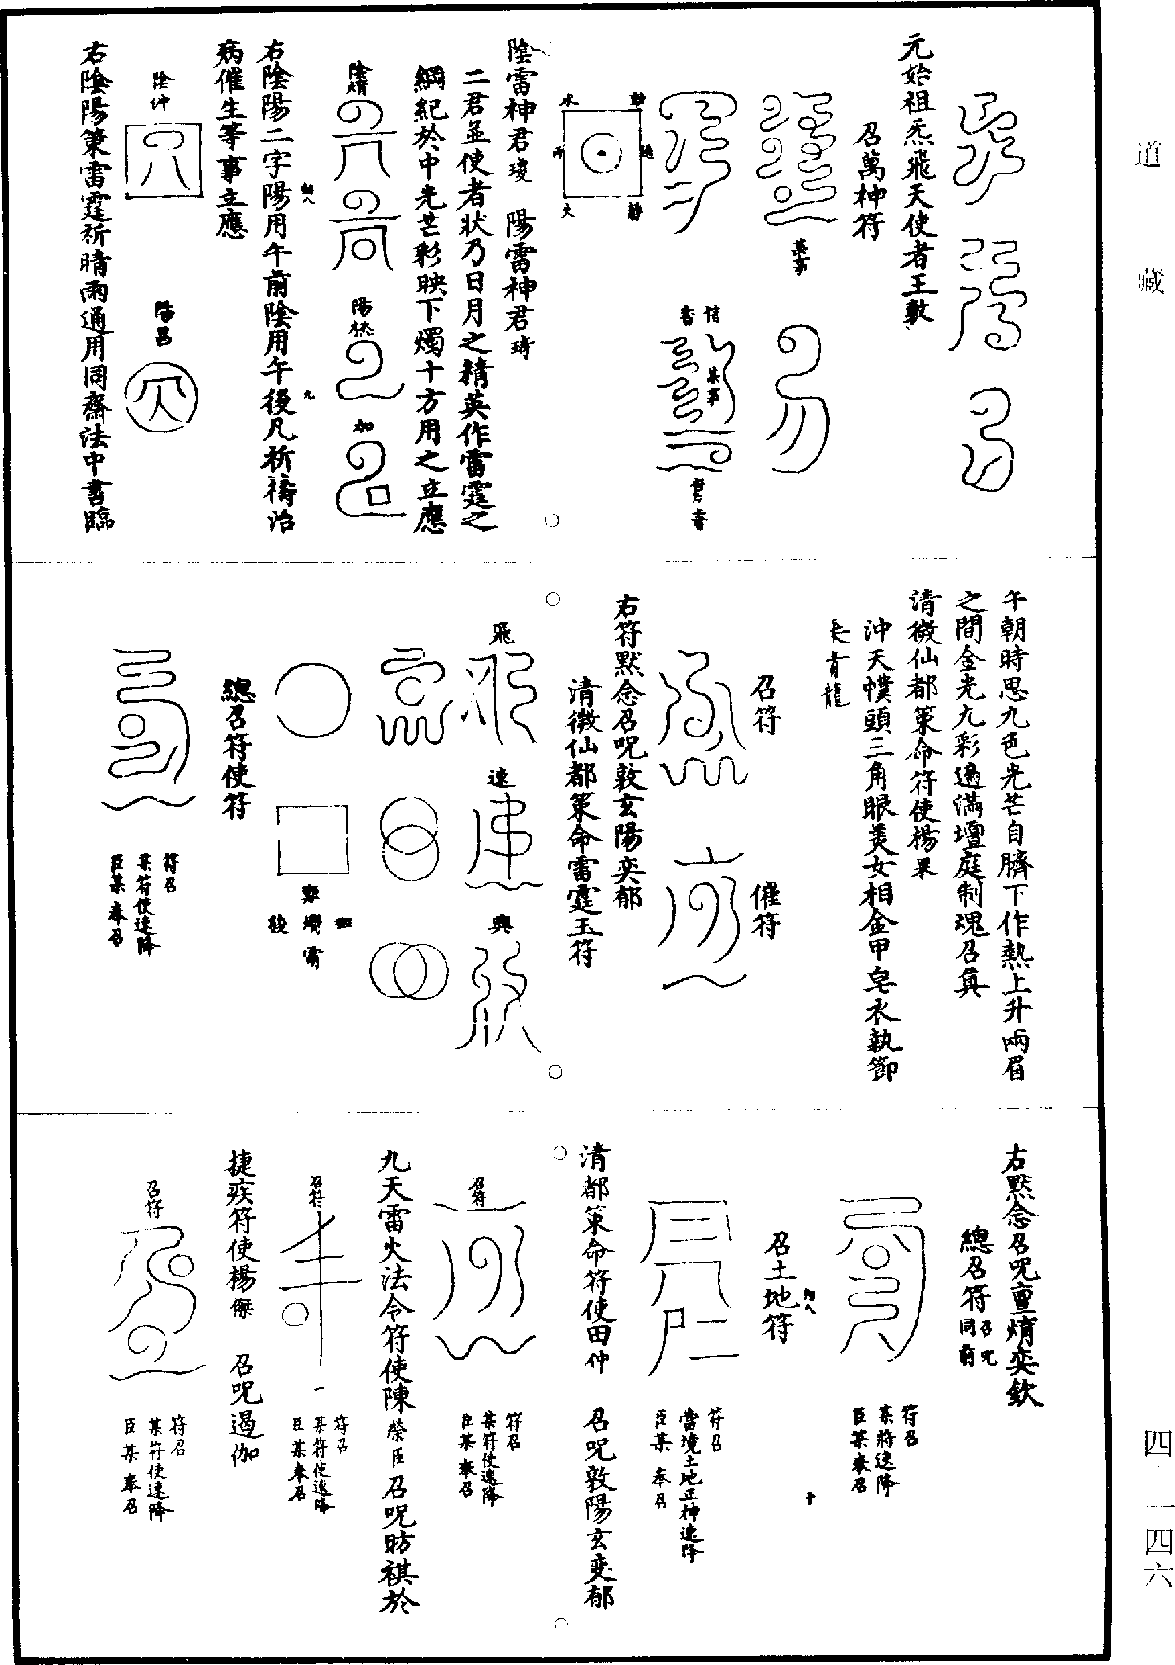 道藏
元始祖炁飛天使者王敷
召萬神符
某事
信
香
某事
書香
動
水
雨
靜
火
陰雷神君琁　陽雷神君琦
二君並使者狀乃日月之精英作雷霆之
綱紀於中光芒彩映下燭十方用之立應
陽
加
右陰陽二字陽用午前陰用午後凡祈禱治
病催生等事立應
陰
陽
右陰陽策雷霆祈晴雨通用同齋法中書臨
午朝時思九色光芒自臍下作熱上升兩眉
之間金光九彩遍滿壇庭制魂召真
清微仙都策命符使楊杲
沖天幞頭三角眼美女相金甲皂衣執節
乘青龍
召符
催符
右符默念召呪敦玄陽奕郁
清微仙都策命雷霆玉符
飛
速
興
總召符使符
符召
某符使速降
臣某奉召
右默念召呪亶焴奕欽
總召符召呪同前
符召
某將速降
臣某奉召
召土地符
符召
當境土地正神速降
臣某奉召
清都策命符使田仲　召呪敦陽玄奕郁
召符
符召
某符使速降
臣某奉召
九天雷火法令符使陳榮臣召呪昉祺於
召符
符召
某符使速降
臣某奉召
捷疾符使楊傑　召呪遏伽
召符
符召
某符使速降
臣某奉召
四　一四六